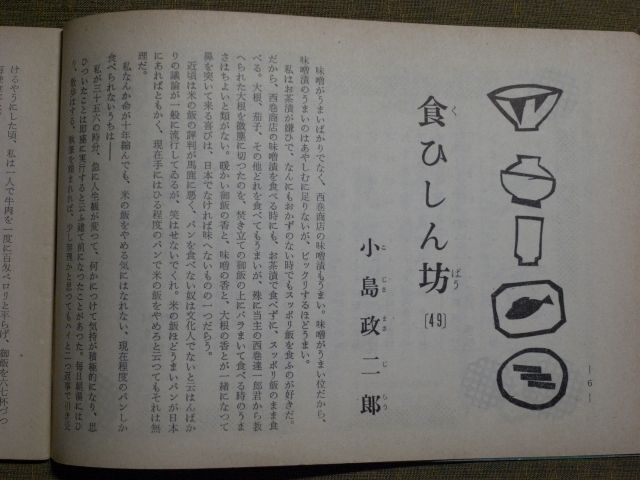 食ひしん坊〔49〕
く
ばう
小島政二郎
こじままさじらう
—6—
味噌がうまいばかりでなく、西巻商店の味噌漬もうまい。味噌がうまい位だから、
味噌漬のうまいのはあやしむに足りないが、ビックリするほどうまい。
私はお茶漬が嫌ひで、なんにもおかずのない時でもスッポリ飯を食ふのが好きだ。
だから、西巻商店の味噌漬を食べる時にも、お茶漬で食べずに、スッポリ飯のまま食
べる。大根、茄子、その他どれを食べてもうまいが、殊に当主の西巻達一郎君から教
へられた大根を微塵に切つたのを、焚き立ての御飯の上にバラまいて食べる時のうま
さはちよいと類がない。暖かい御飯の香と、味噌の香と、大根の香とが一緒になつて
鼻を突いて来る喜びは、日本でなければ味へないものの一つだらう。
近頃は米の飯の評判が馬鹿に悪く、パンを食べない奴は文化人でないと云はんばか
りの議論が一般に流行してゐるが、笑はせないでくれ。米の飯ほどうまいパンが日本
にあればともかく、現在手にはひる程度のパンで米の飯をやめろと云つてもそれは無
理だ。
私なんか命が十年縮んでも、米の飯をやめる気にはなれない、現在程度のパンしか
食べられないうちは――
私が三十五六の時分、急に人生観が変つて、何かにつけて気持が積極的になり、思
ひついたことは即座に実行すると云ふ建て前になつたことがあつた。毎日
けるやうにした頃、私は一人で牛肉を一度に百匁ペロリと平らげ、御飯を六七杯づつ